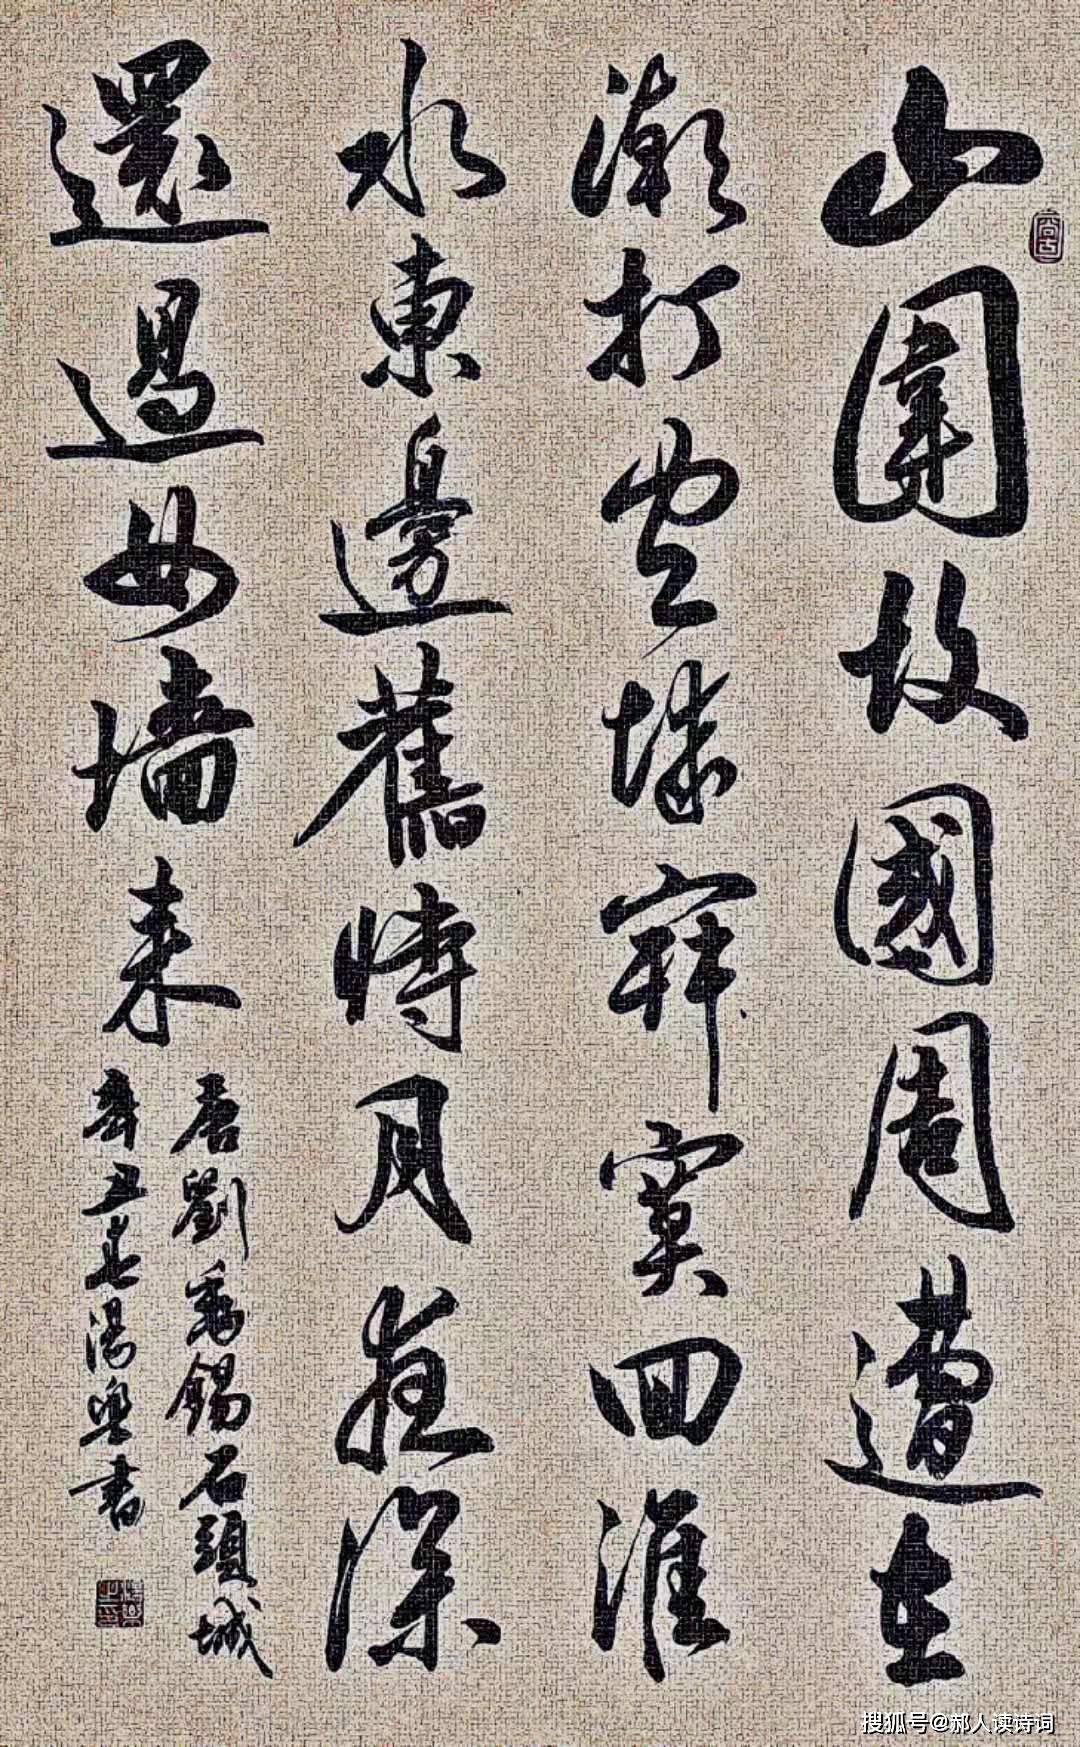 山圍故國周遭在
潮打空城寂寞回淮
水東邊舊時月夜深
還過女墙来
唐劉禹錫石頭城
辛丑春湯書
尚古
搜狐号@郝人读诗词